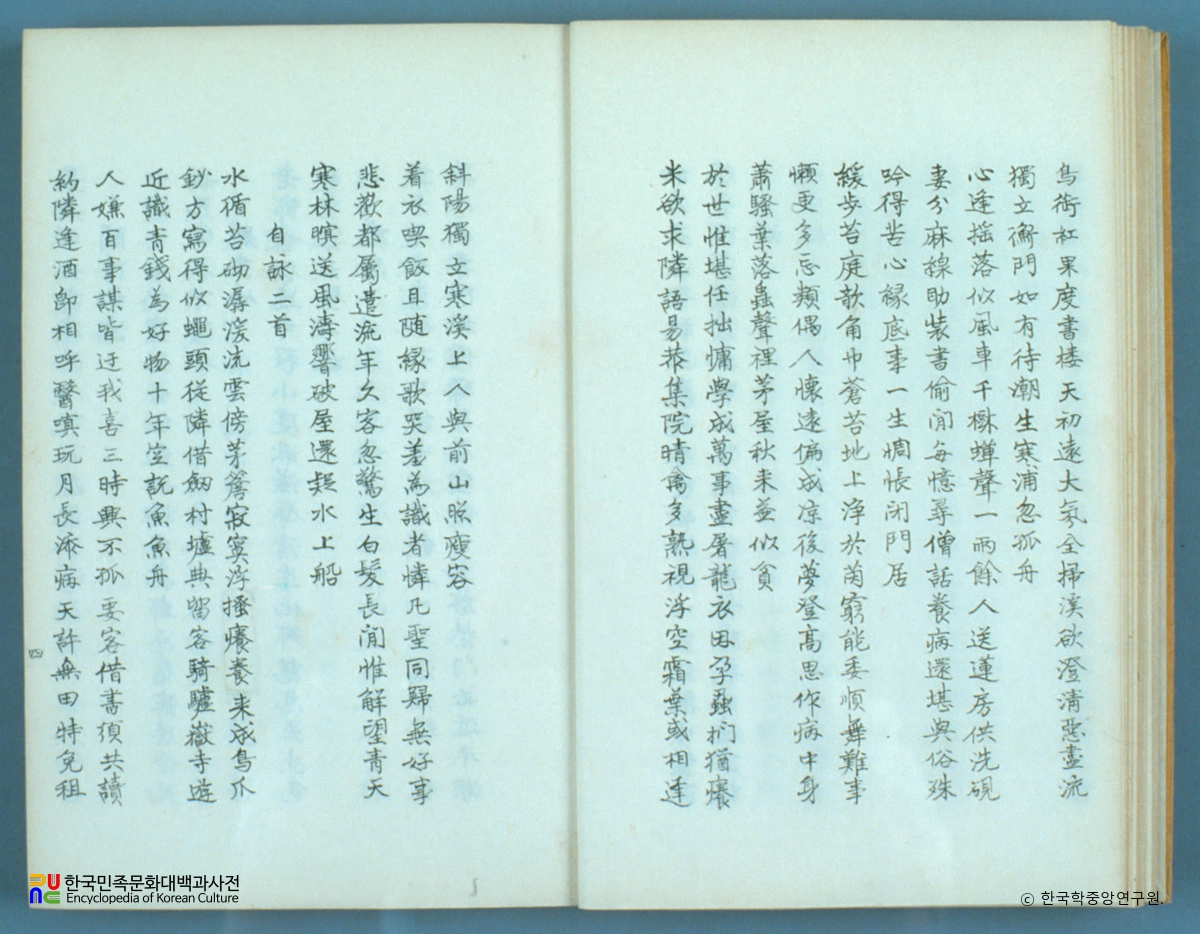 烏銜紅果度書楼天初遠大氛全掃溪欲澄清惡盡流
獨立衡門如有待潮生寒浦忽孤舟
心逢揺落似風車千樹蟬聲一雨餘人送蓮房供洗硯
妻分麻線助装書偷閒每憶尋僧話養病還堪與俗殊
吟得苦心緣底事一生惆悵閉門居
緩步苔庭欹角巾蒼苔地上浄於茵窮能委順無難事
懶更多忘類偶人懷遠偏成凉後夢登髙思作病中身
蕭騷葉落蟲聲裡茅屋秋来並似貧
於世惟堪任拙慵學成萬事盡屠龍衣因孕蝨捫猶癢
米欲求隣語易恭集院晴禽多熟視浮空霜葉或相逢
斜陽獨立寒溪上人與前山照瘦容
着衣喫飯且随緣歌哭羞為識者憐凡聖同歸無好事
悲歡都屬遣流年久客忽驚生白髮長閒惟解望青天
寒林暝送風濤響破屋還疑水上船
自詠二首
水循苔砌潺湲流雲傍茅簷寂寞浮搔癢養来成鳥爪
鈔方寫得似蠅頭從隣借劔村墟典留客騎驢嶽寺遊
近識青錢為好物十年空說魚魚舟
人嫌百事謀皆迂我喜三時興不孤要客借書須共讀
約隣逢酒即相呼醫嗔玩月長添病天許無田特免租
四
한국민족문화대백과사전
Encyclopedia of Korean Culture
© 한국학중앙연구원.